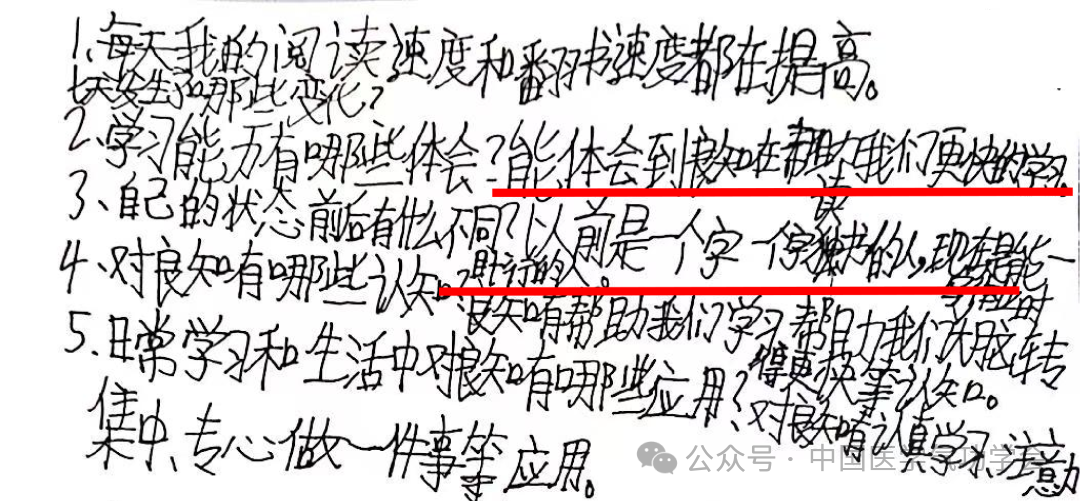 1、每天我的阅读速度和翻书速度都在提高。
七天发生了哪些变化?
2、学习能力有哪些体会?能体会到良知在帮助我们更快的学习。
3、自己的状态前后有什么不同?以前是一个字一个字读书的人,现在是能一
时行的人。
4、对良知有哪些认知?良知有帮助我们学习帮助我们大脑转
得更快等认知。
5、日常学习和生活中对良知有哪些应用?对良知有认真学习、注意力
集中、专心做一件事等应用。
公众号·中国医学气功学会